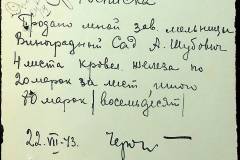 Расписка
Продано мной зав. мельницы
Виноградный Сад А. Шубович
4 места кровел. железа по
20 марок за мест, итого
80 марок (восемьдесят)
22. VII - 43.